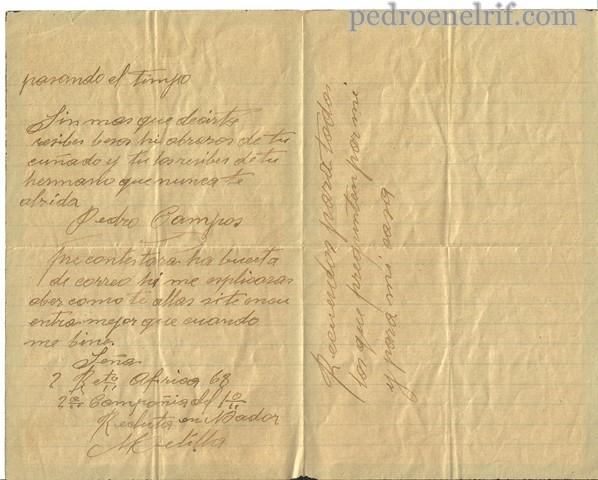 pedroenelrif.com
pasando el timpo
Sin mas que decirte
resibes besos hi abrazos de tu
cuñado y tu los resibes de tu
hermano que nunca te
alvida
Pedro Campos
me contestara ha buerta
de correo hi me esplicaras
aber como te allas si te encu
entra mejor que cuando
me bine
Seña
2 Reto Africa 68
2ª Compañia del 1º
Reducta en Nador
Melilla
Recuerdos para todos
los que preguntan por mi
y para mi casa